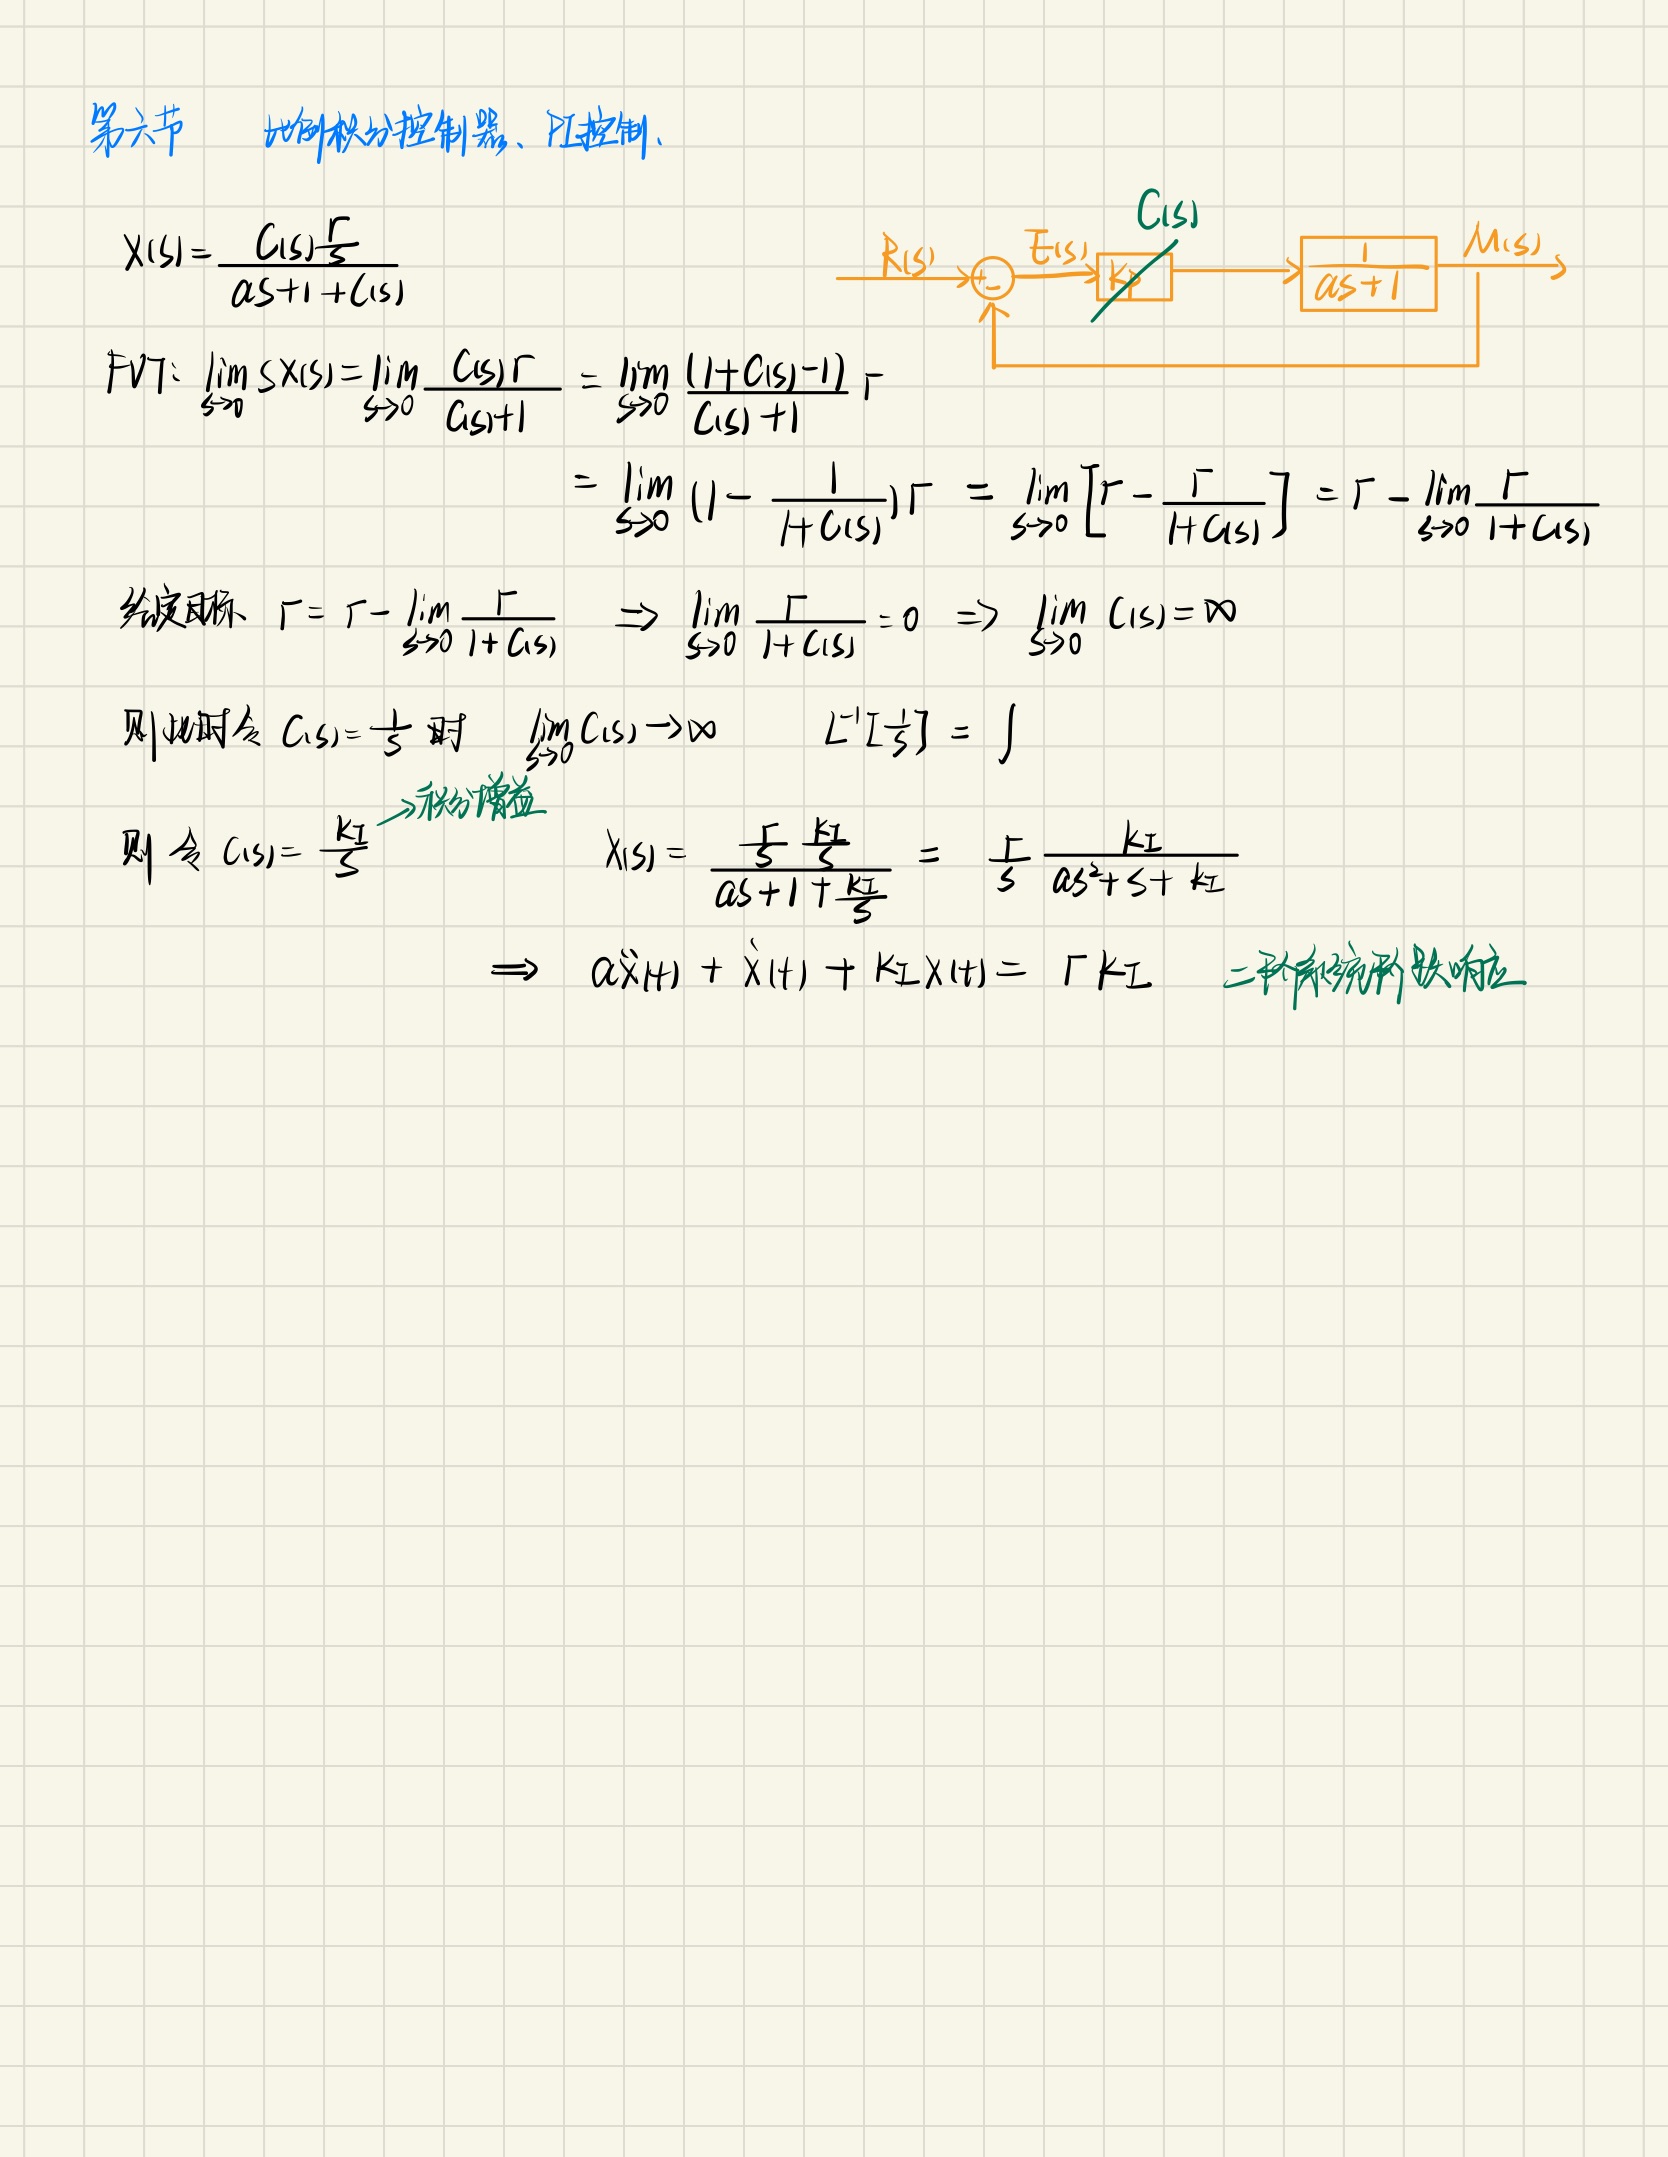 第六节 比例积分控制器、PI控制、
C(s)
R(s) + - E(s) Kp 1/(as+1) M(s)
X(s) = (C(s) r/s)/(as+1+C(s))
FVT: lim_{s→0} sX(s) = lim_{s→0} C(s)r/(C(s)+1) = lim_{s→0} (1+C(s)-1)/(C(s)+1) r
= lim_{s→0} (1 - 1/(1+C(s))) r = lim_{s→0} [r - r/(1+C(s))] = r - lim_{s→0} r/(1+C(s))
给定目标 r = r - lim_{s→0} r/(1+C(s)) ⇒ lim_{s→0} r/(1+C(s)) = 0 ⇒ lim_{s→0} C(s) = ∞
则此时令 C(s) = 1/s 时 lim_{s→0} C(s) → ∞ L⁻¹[1/s] = ∫
→积分增益
则令 C(s) = K_I/s X(s) = (r/s K_I/s)/(as+1+K_I/s) = r/s K_I/(as²+s+K_I)
⇒ aẍ(t) + ẋ(t) + K_I x(t) = r K_I 二阶系统阶跃响应